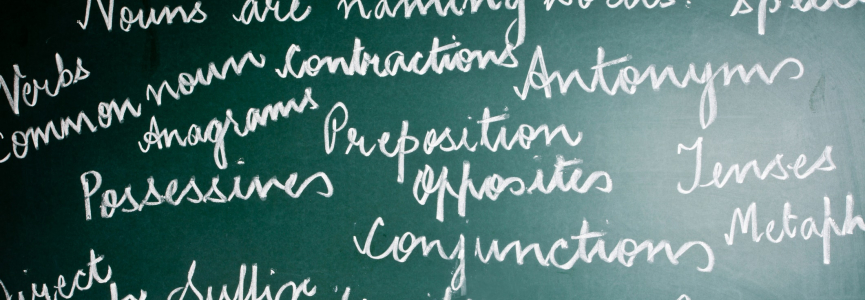 Nouns are naming words.
Verbs
Common noun contractions Antonyms
Anagrams Preposition
Possessives opposites Tenses
Conjunctions Metaph
irect
Suffix